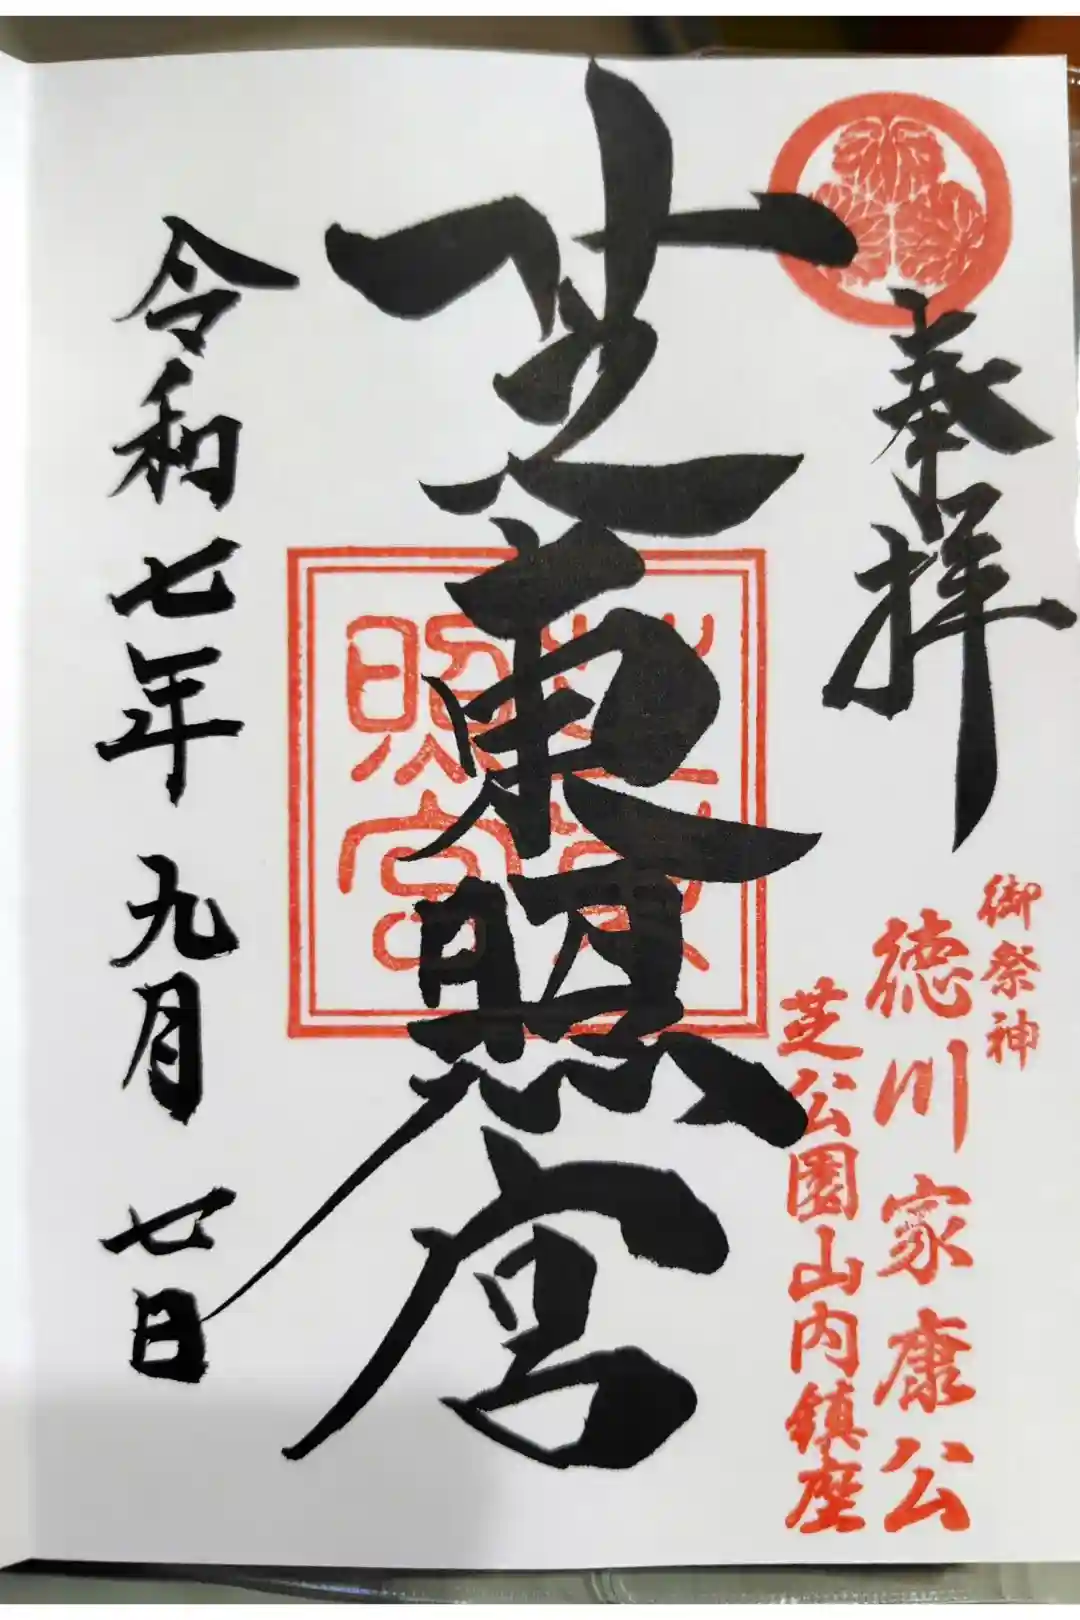 奉拝
御祭神
徳川家康公
芝公園山内鎮座
芝東照宮
芝東
照宮
令和七年九月七日